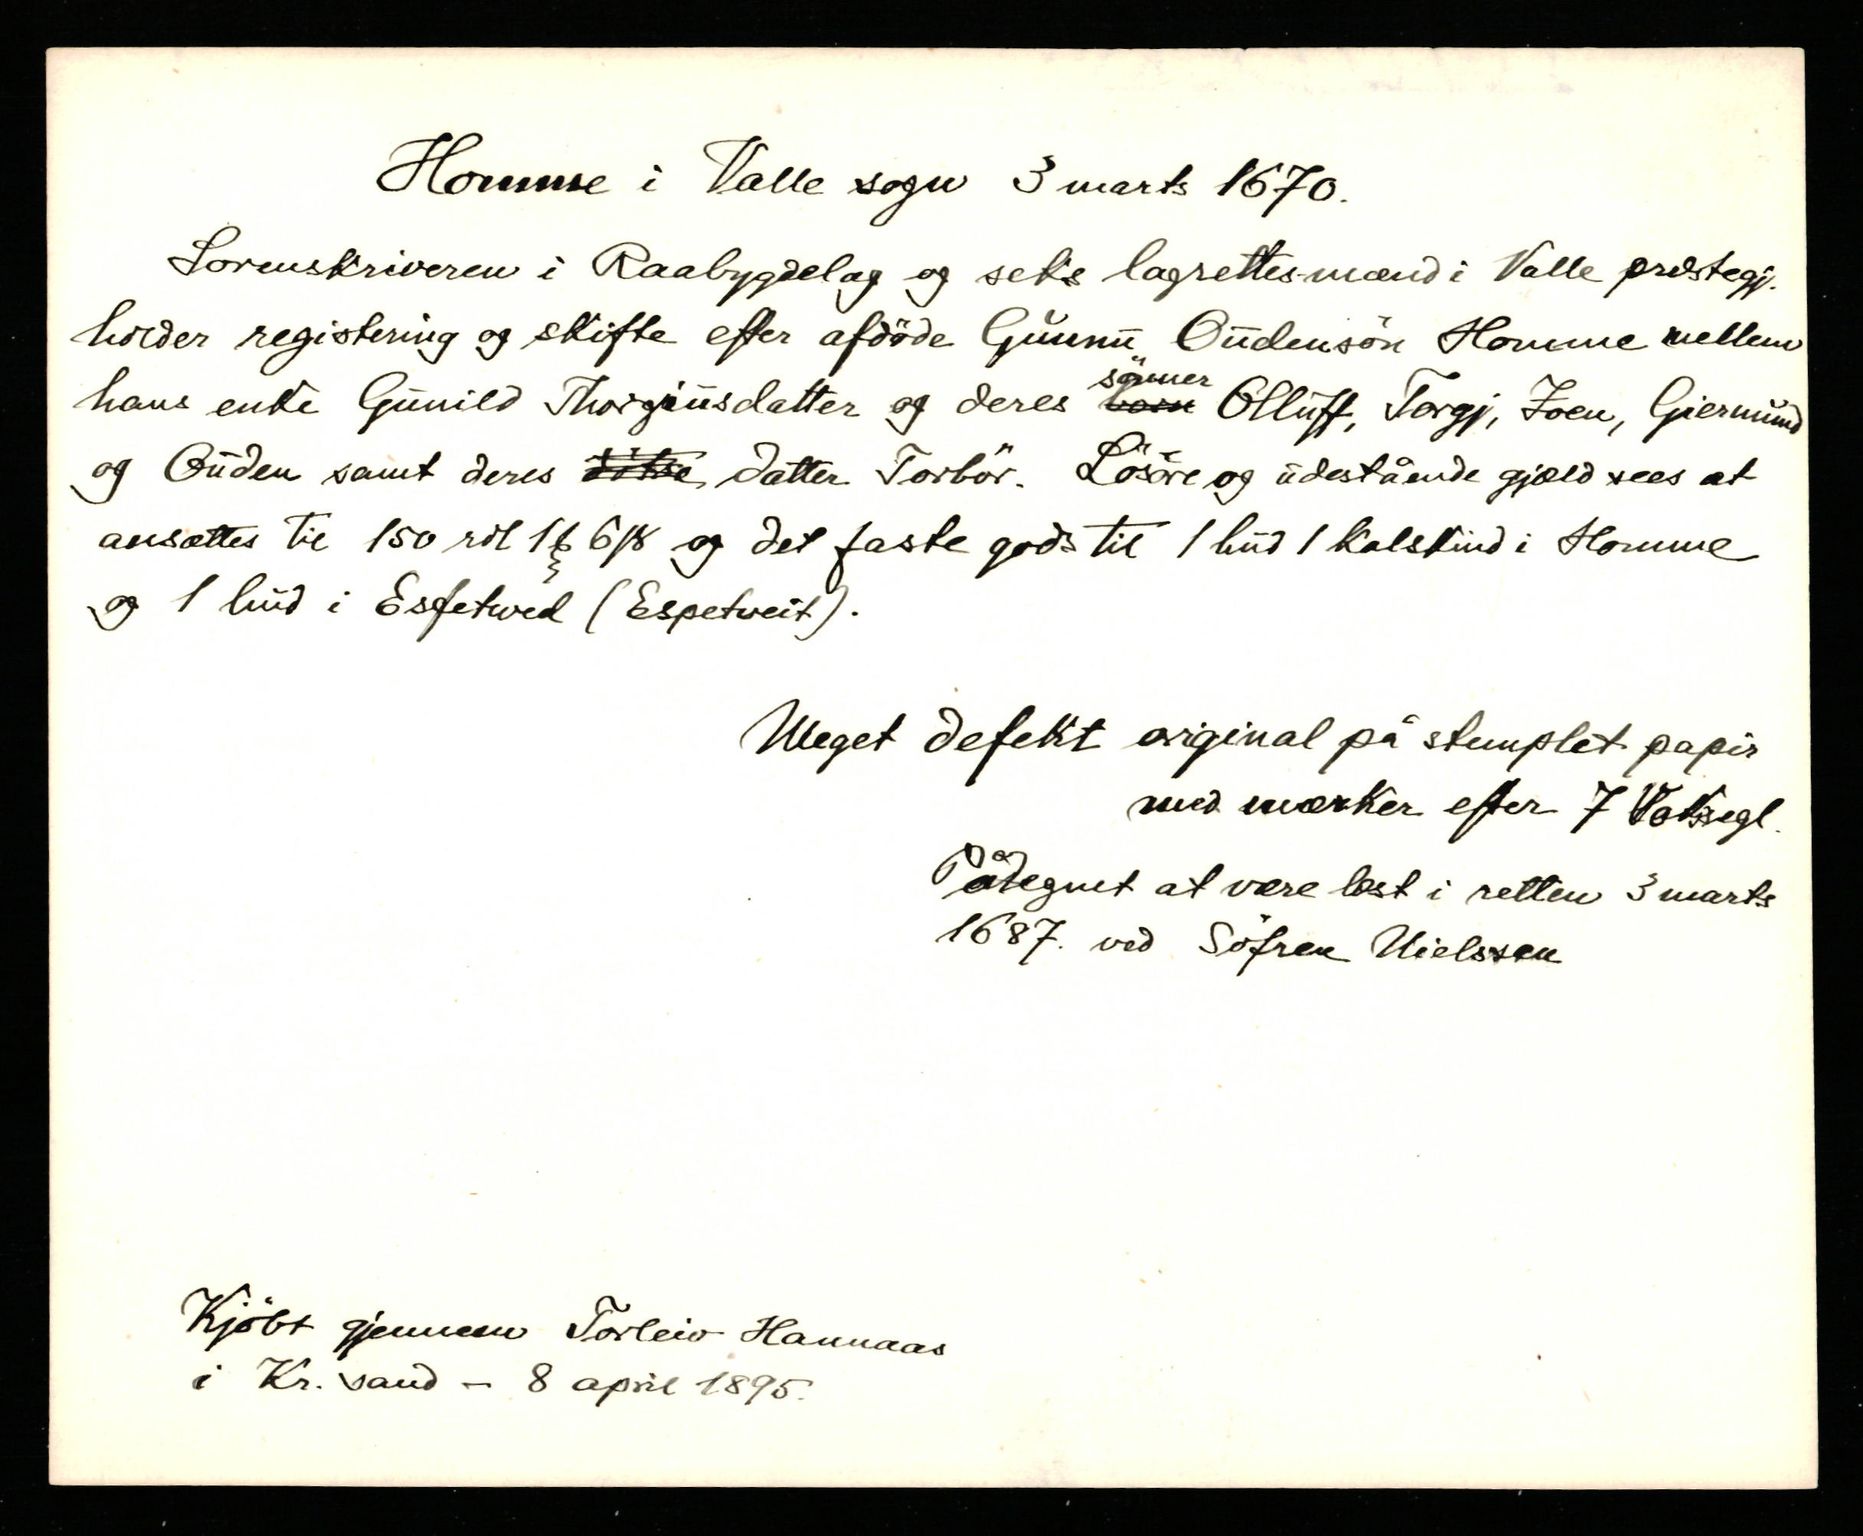 Homme i Valle sogn 3 marts 1670.
Sorenskriveren i Raabygdelag og seks lagrettesmænd i Valle præstegj.
holder registering og skifte efter afdöde Gunnū Oūdensön Homme mellem
hans enke Gūnild Thorgiūsdatter og deres sönner Ollūff, Torgj, Joen, Giermūnd
og Oūden samt deres datter Torbör. Lösöre og ūdestående gjæld sees at
ansættes til 150 rdl 1 6 ß og det faste gods til 1 hūd 1 kalskind i Homme
og 1 hūd i Esfetved (Espetveit).
Meget defekt original på stemplet papir
med mærker efter 7 Voksegl.
Påtegnet at være læst i retten 3 marts
1687. ved Söfren Nielssen
Kjöbt gjennem Torleiv Hannaas
i Kr. sand - 8 april 1895.